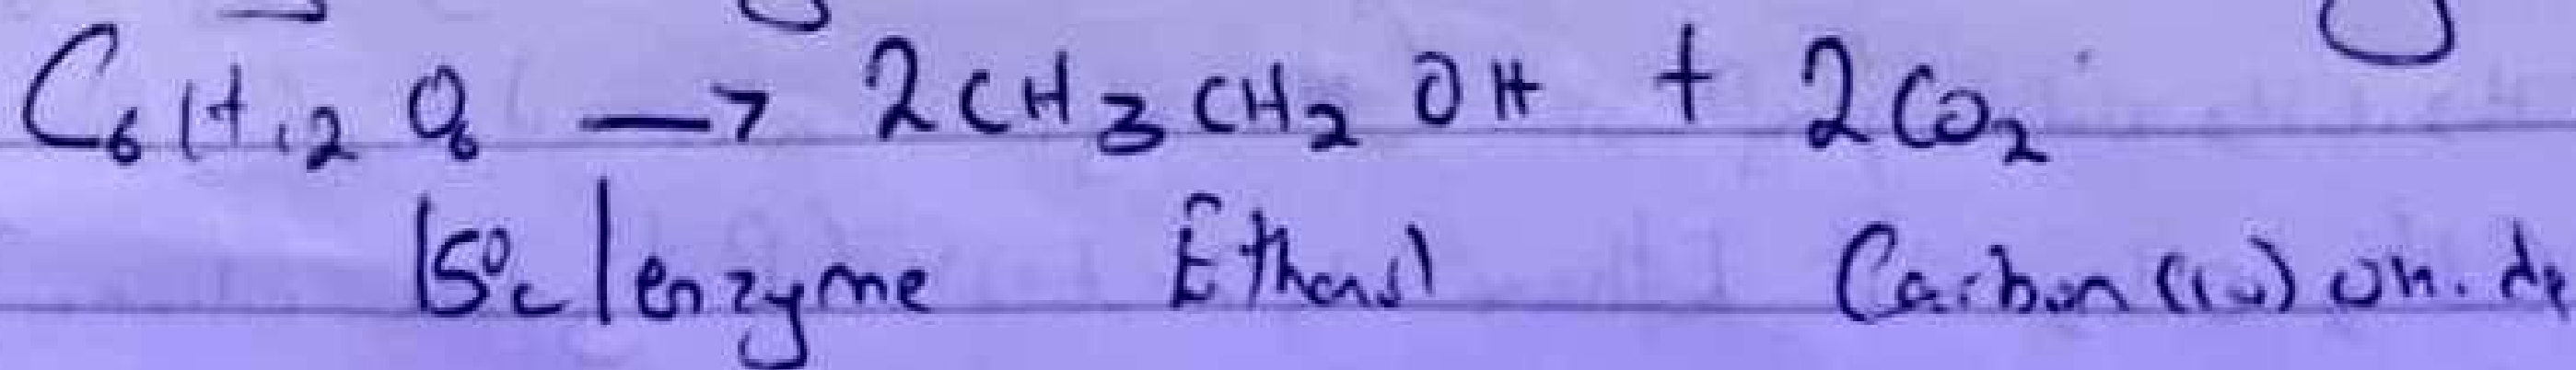 C₆H₁₂O₆ → 2CH₃CH₂OH + 2CO₂
15°c | enzyme Ethanol Carbon (iv) oxide